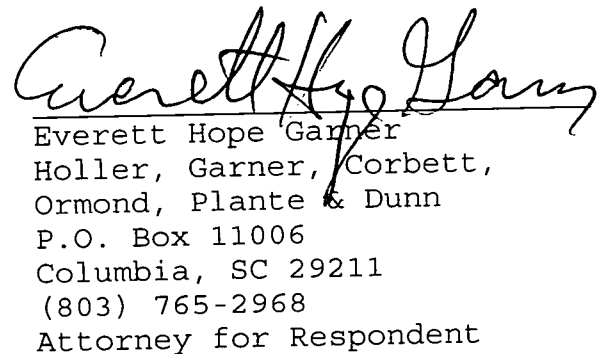 Everett Hope Garner
Everett Hope Garner
Holler, Garner, Corbett,
Ormond, Plante & Dunn
P.O. Box 11006
Columbia, SC 29211
(803) 765-2968
Attorney for Respondent